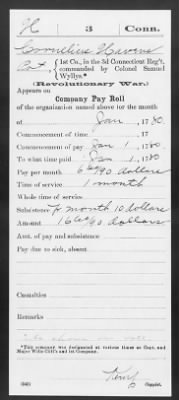 H 3 Conn.
Cornelius Havens
1st Co., in the 3d Connecticut Reg't,
commanded by Colonel Samuel
Wyllys.*
(Revolutionary War.)
Appears on
Company Pay Roll
of the organization named above for the month
of Jan, 1780.
Commencement of time 17
Commencement of pay Jan 1, 1780.
To what time paid Jan 1, 1780
Pay per month 6 60/90 dollars
Time of service 1 month
Whole time of service
Subsistence month 10 dollars
Amount 16 60/90 dollars
Amt. of pay and subsistence
Pay due to sick, absent
Casualties
Remarks
*This company was designated at various times as Capt. and
Major Wills Clift's and 1st Company.
Copyist.